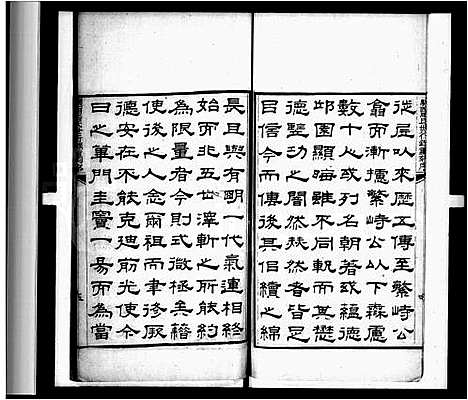 從居以來歷五傳至繫崎公
翕而漸擴繫崎公以下森處
數十人或列名朝著或蘊德
邱園顯晦雖不同軌而其懋
德壁功之闇然表著者皆足
日信今而傳後其自續之綿
長且與有明一代氣運相終
始而非五世澤斬之所能約
為限量者今則式微極矣藉
使後之人念爾祖而聿後厥
德安在不能克迪前光使今
日之蓽門圭竇一易而為當